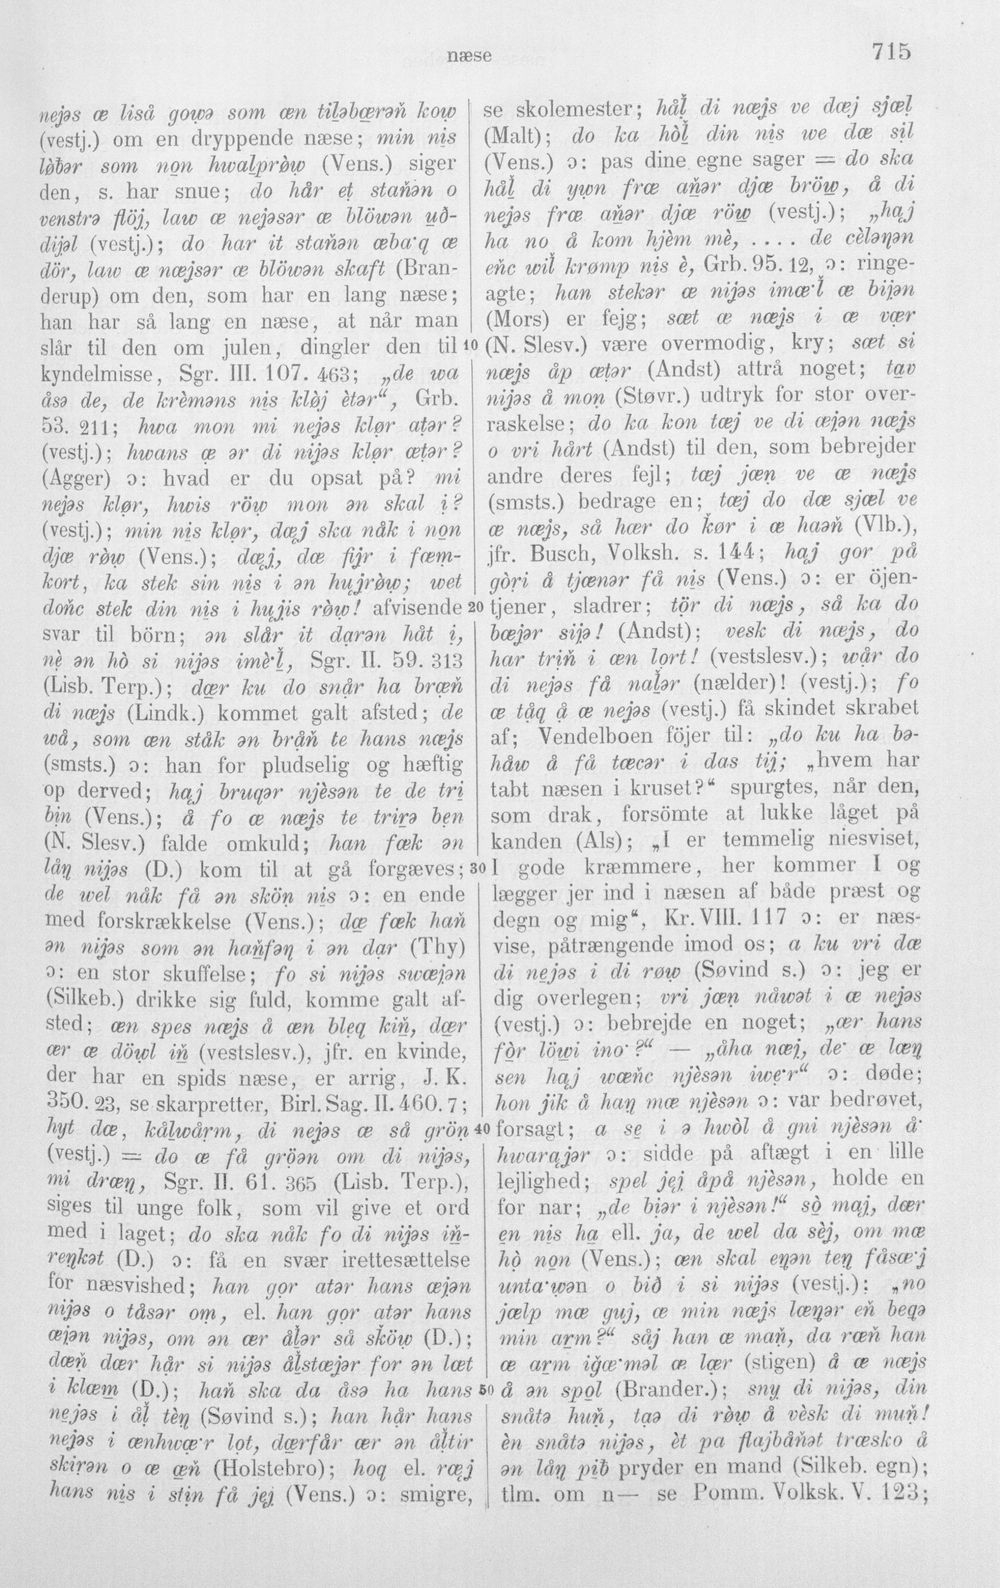 næse
715
nejəs œ liså gowə som œn tiləbœrəň kow
(vestj.) om en dryppende næse; min nis
løbər som non hwalprøw (Vens.) siger
den, s. har snue; do hår et staňən o
venstrə flöj, law œ nejəsər œ blöwən uð-
dijəl (vestj.); do har it staňən œba·q œ
dör, law œ nœjsər œ blöwən skaft (Bran-
derup) om den, som har en lang næse;
han har så lang en næse, at når man
slår til den om julen, dingler den til 10
kyndelmisse, Sgr. III. 107. 463; „de wa
åsə de, de krèməns nis klòj ètər“, Grb.
53. 211; hwa mon mi nejəs klør atər?
(vestj.); hwans œ ər di nijəs klør œtər?
(Agger) ɔ: hvad er du opsat på? mi
nejəs klør, hwis röw mon ən skal i?
(vestj.); min nis klør, dœj ska nåk i non
djœ røw (Vens.); dœj, dœ fijr i fœm-
kort, ka stek sin nis i ən hujrøw; wet
doňc stek din nis i hujis røw! afvisende 20
svar til börn; ən slår it darən håt i,
nè ən hò si nijəs imè·l, Sgr. II. 59. 313
(Lisb. Terp.); dœr ku do snår ha brœň
di nœjs (Lindk.) kommet galt afsted; de
wå, som œn ståk ən bråň te hans nœjs
(smsts.) ɔ: han for pludselig og hæftig
op derved; haj bruqər njèsən te de tri
bin (Vens.); å fo œ nœjs te trirə ben
(N. Slesv.) falde omkuld; han fœk ən
låŋ nijəs (D.) kom til at gå forgæves; 30
de wel nåk få ən skön nis ɔ: en ende
med forskrækkelse (Vens.); dœ fœk haň
ən nijəs som ən haňfəŋ i ən dar (Thy)
ɔ: en stor skuffelse; fo si nijəs swœjən
(Silkeb.) drikke sig fuld, komme galt af-
sted; œn spes nœjs å œn bleq kiň, dœr
œr œ döwl iň (vestslesv.), jfr. en kvinde,
der har en spids næse, er arrig, J. K.
350. 23, se skarpretter, Birl. Sag. II. 460. 7;
hyt dœ, kålwårm, di nejəs œ så grön 40
(vestj.) = do œ få gröən om di nijəs,
mi drœŋ, Sgr. II. 61. 365 (Lisb. Terp.),
siges til unge folk, som vil give et ord
med i laget; do ska nåk fo di nijəs iň-
reŋkət (D.) ɔ: få en svær irettesættelse
for næsvished; han gor atər hans œjən
nijəs o tåsər om, el. han gor atər hans
œjən nijəs, om ən œr ålər så sköw (D.);
dœň dœr hår si nijəs ålstœjər for ən lœt
i klœm (D.); haň ska da åsə ha hans 50
nejəs i ål tèŋ (Søvind s.); han hår hans
nejəs i œnhwœ·r lot, dœrfår œr ən åltir
skirən o œ œň (Holstebro); hoq el. rœj
hans nis i stin få jej (Vens.) ɔ: smigre,
se skolemester; hål di nœjs ve dœj sjœl
(Malt); do ka hòl din nis we dœ sil
(Vens.) ɔ: pas dine egne sager = do ska
hål di ywn frœ aňər djœ bröw, å di
nejəs frœ aňər djœ röw (vestj.); „haj
ha no å kom hjèm mè, .... de cèləŋən
eňc wil krømp nis è, Grb. 95. 12, ɔ: ringe-
agte; han stekər œ nijəs imœ·l œ bijən
(Mors) er fejg; sœt œ nœjs i œ vœr
(N. Slesv.) være overmodig, kry; sœt si
nœjs åp œtər (Andst) attrå noget; tav
nijəs å mon (Støvr.) udtryk for stor over-
raskelse; do ka kon tœj ve di œjən nœjs
o vri hårt (Andst) til den, som bebrejder
andre deres fejl; tœj jœn ve œ nœjs
(smsts.) bedrage en; tœj do dœ sjœl ve
œ nœjs, så hœr do kør i œ haəň (Vlb.),
jfr. Busch, Volksh. s. 144; haj gor på
gòri å tjœnər få nis (Vens.) ɔ: er öjen-
tjener, sladrer; tör di nœjs, så ka do
bœjər sijə! (Andst); vesk di nœjs, do
har triň i œn lort! (vestslesv.); wår do
di nejəs få nalər (nælder)! (vestj.); fo
œ tåq å œ nejəs (vestj.) få skindet skrabet
af; Vendelboen föjer til: „do ku ha bə-
håw å få tœcər i das tij; „hvem har
tabt næsen i kruset?“ spurgtes, når den,
som drak, forsömte at lukke låget på
kanden (Als); „I er temmelig niesviset,
I gode kræmmere, her kommer I og
lægger jer ind i næsen af både præst og
degn og mig“, Kr. VIII. 117 ɔ: er næs-
vise, påtrængende imod os; a ku vri dœ
di nejəs i di røw (Søvind s.) ɔ: jeg er
dig overlegen; vri jœn nåwət i œ nejəs
(vestj.) ɔ: bebrejde en noget; „œr hans
fòr löwi ino· ?“ — „åha nœj, de· œ lœŋ
sen haj wœňc njèsən iwe·r“ ɔ: døde;
hon jik å haŋ mœ njèsən ɔ: var bedrøvet,
forsagt; a se i ə hwòl å gni njèsən å·
hwarajər ɔ: sidde på aftægt i en lille
lejlighed; spel jej åpå njèsən, holde en
for nar; „de biər i njèsən!“ sò maj, dœr
en nis ha ell. ja, de wel da sèj, om mœ
hò non (Vens.); œn skal eŋən teŋ fåsœ·j
unta·wən o bið i si nijəs (vestj.); „no
jœlp mœ guj, œ min nœjs lœŋər eň beqə
min arm?“ såj han œ maň, da rœň han
œ arm iğœ·məl œ lœr (stigen) å œ nœjs
å ən spol (Brander.); sny di nijəs, din
snåtə huň, taə di røw å vèsk di muň!
èn snåtə nijəs, èt pa flajbåňət trœsko å
ən låŋ pib pryder en mand (Silkeb. egn);
tlm. om n— se Pomm. Volksk. V. 123;